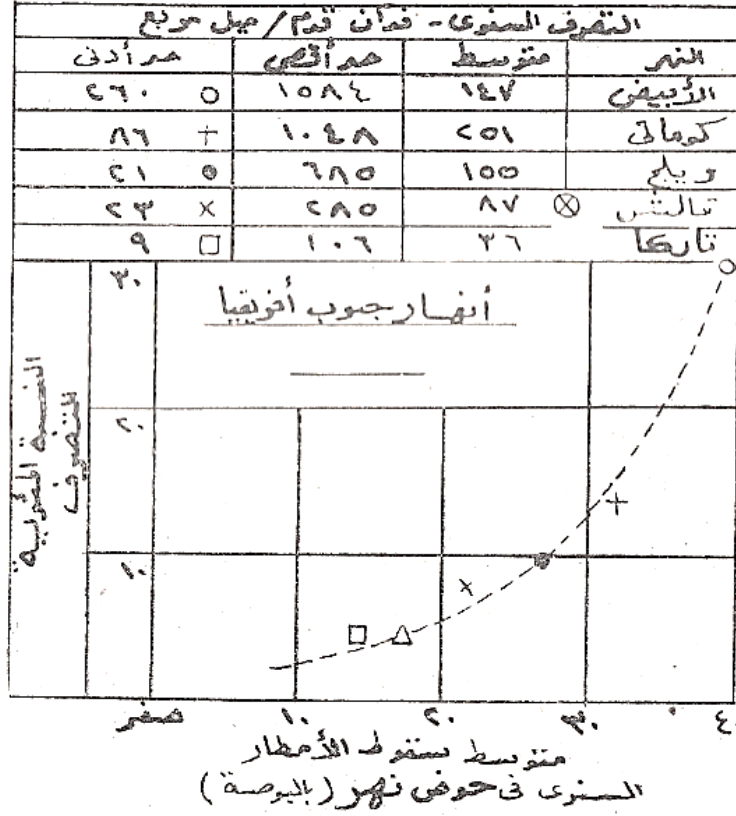 التصرف السنوى - فدان قدم / ميل مربع
النهر متوسط حد أقصى حد أدنى
الأبيض ١٤٧ ١٥٨٤ ٢٦٠
كوماتى ٢٥١ ١٠٤٨ ٨٦
ويلج ١٥٥ ٦٨٥ ٢١
تالتس ٨٧ ٢٨٥ ٢٣
تاركا ٣٦ ١٠٦ ٩
أنهار جنوب أفريقيا
٣٠
٢٠
١٠
النسبة المئوية
للتصرف
صفر ١٠ ٢٠ ٣٠ ٤٠
متوسط سقوط الأمطار
السنوى فى حوض نهر (بالبوصة)